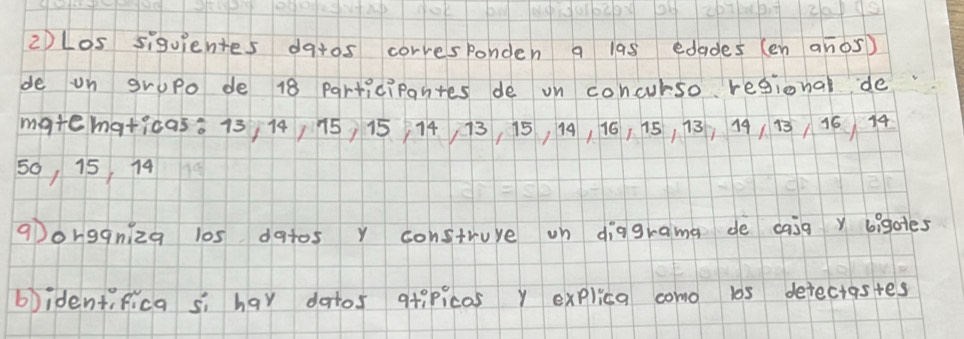 2) Los siguientes datos corresponden a las edades (en años)
de un grupo de 18 participantes de un concurso regional de
matematicas: 13, 14, 15, 15, 14, 13, 15, 14, 16, 15, 13, 14, 13, 16, 14
50, 15, 14
a) organiza los datos y construye un diagrama de caja y bigotes
b) identifica si hay datos atipicos y explica como los detectastes